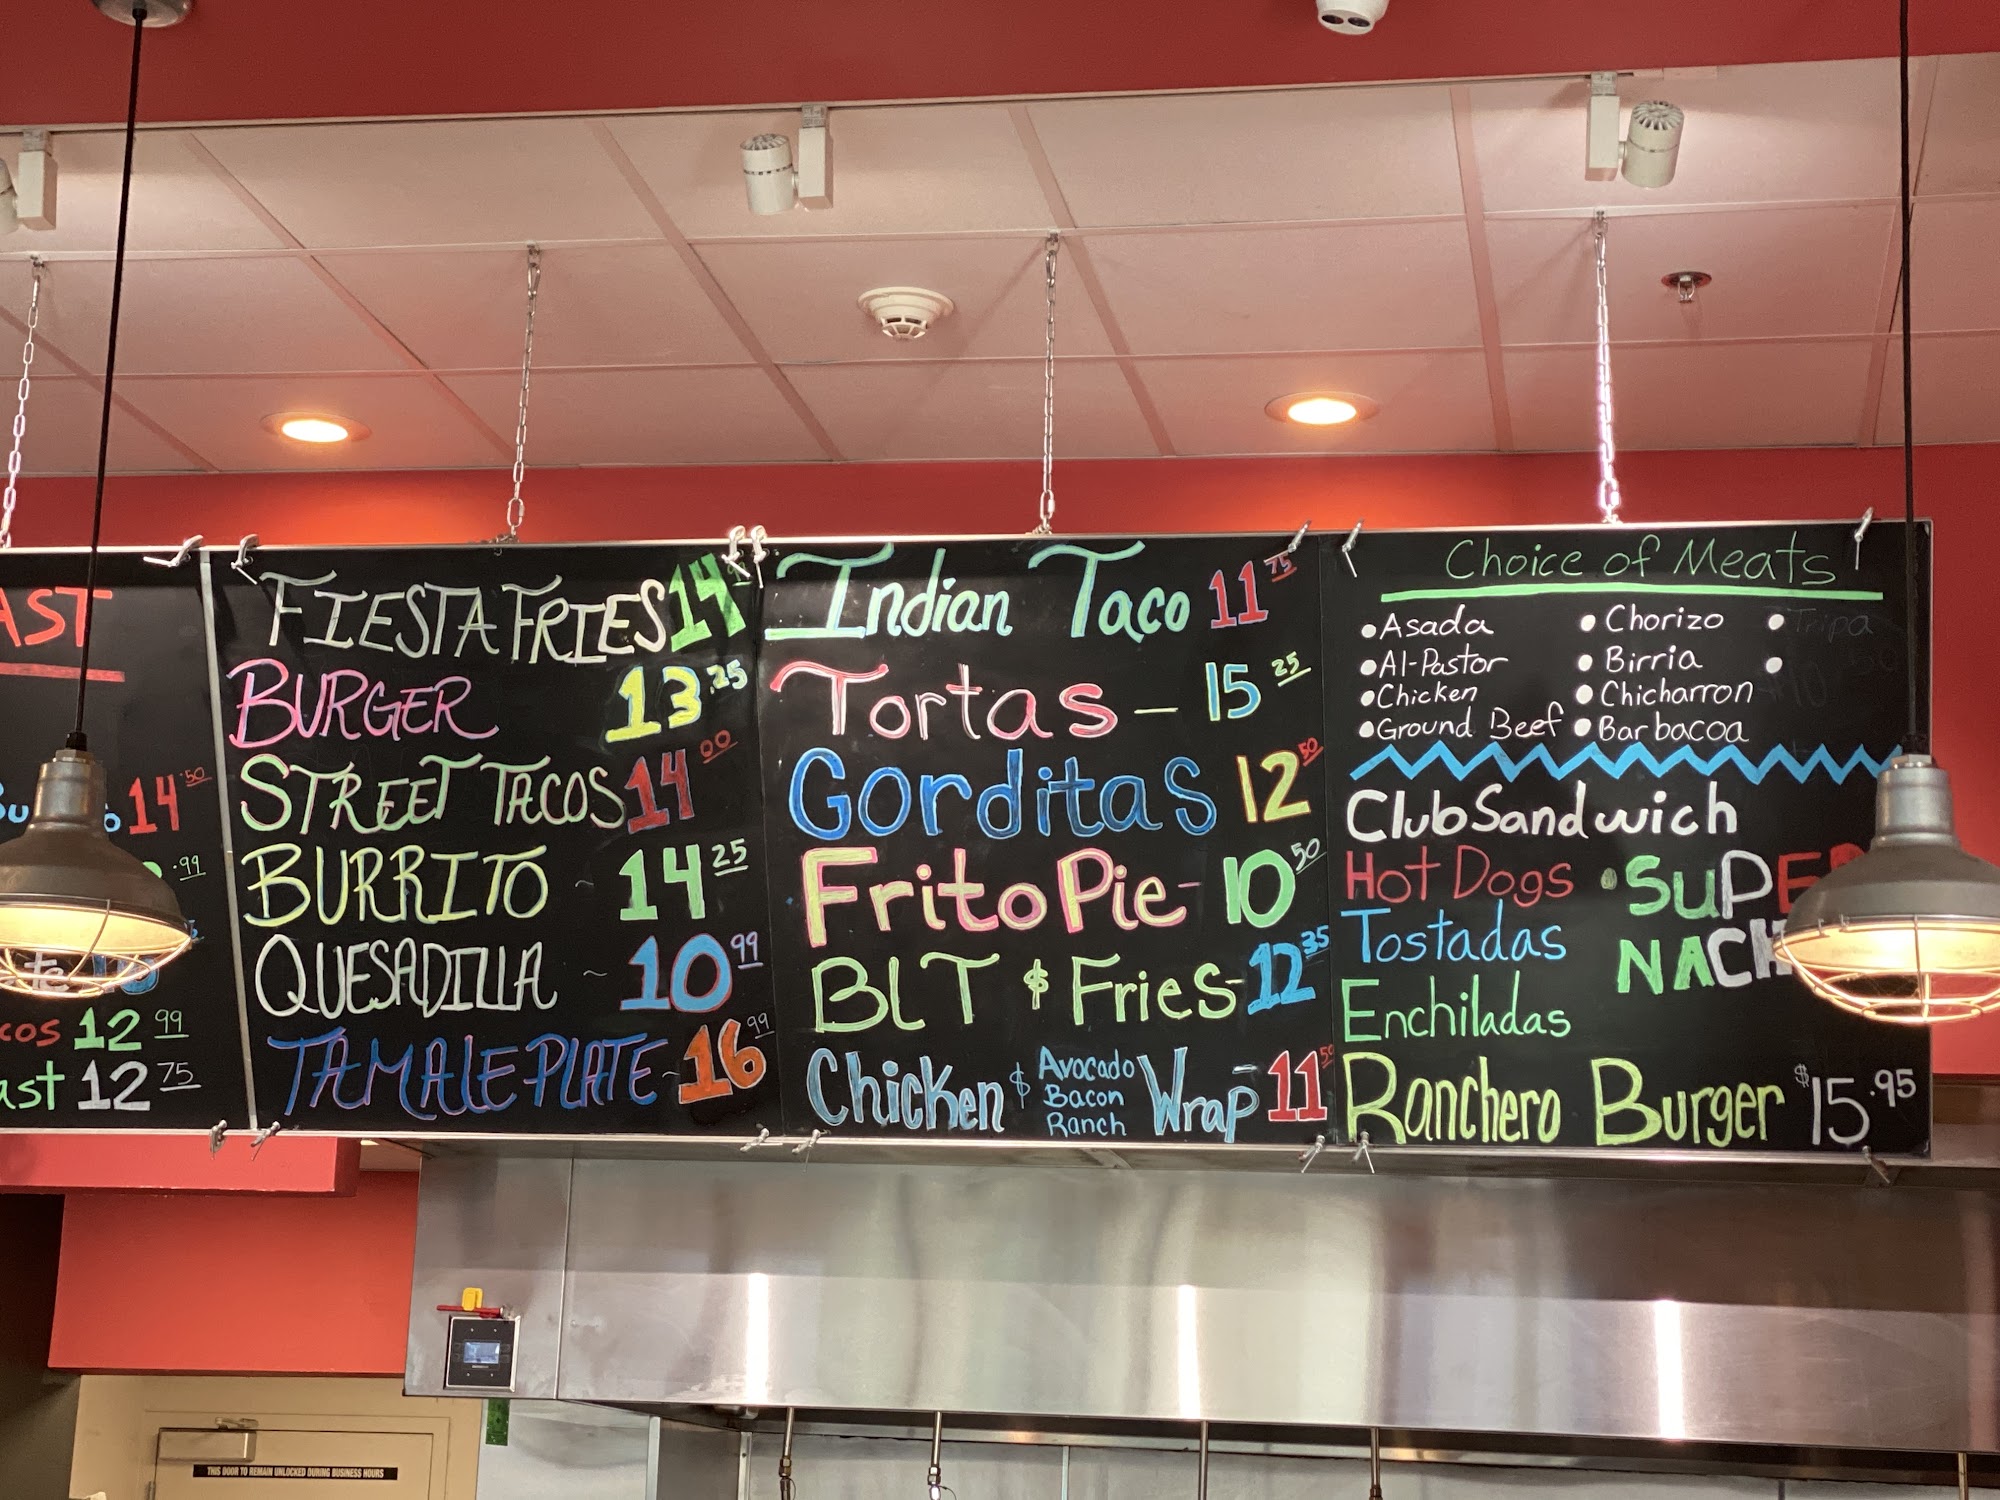 AST
14.50
.99
te
cos 12 99
ast 12 75
FIESTA FRIES 14
BURGER 13.25
STREET TACOS 14 00
BURRITO ~ 14 25
QUESADILLA ~ 10 99
TAMALE PLATE ~ 16 99
Indian Taco 11 75
Tortas — 15 25
Gorditas 12 50
Frito Pie - 10 50
BLT $ Fries - 12 35
Chicken $ Avocado Bacon Ranch Wrap 11 50
Choice of Meats
• Asada • Chorizo • Tripa
• Al-Pastor • Birria •
• Chicken • Chicharron
• Ground Beef • Barbacoa
Club Sandwich
Hot Dogs • SUPE
Tostadas NACH
Enchiladas
Ranchero Burger $15.95
THIS DOOR TO REMAIN UNLOCKED DURING BUSINESS HOURS